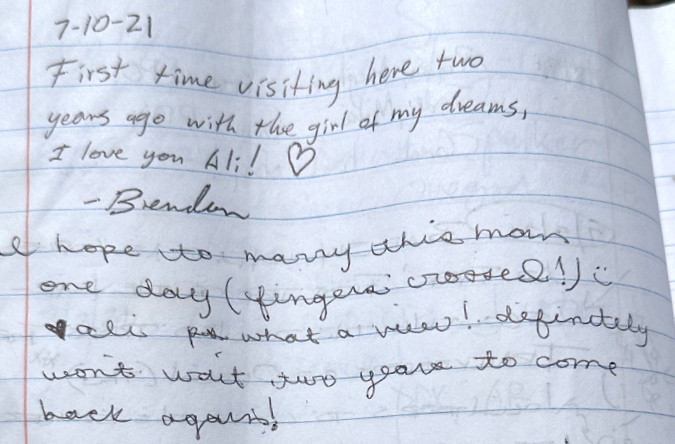 7-10-21
First time visiting here two
years ago with the girl of my dreams,
I love you Ali! ♡
- Brendan
I hope to marry this man
one day (fingers crossed!) :)
♥ ali what a view! definitely
won't wait two years to come
back again!